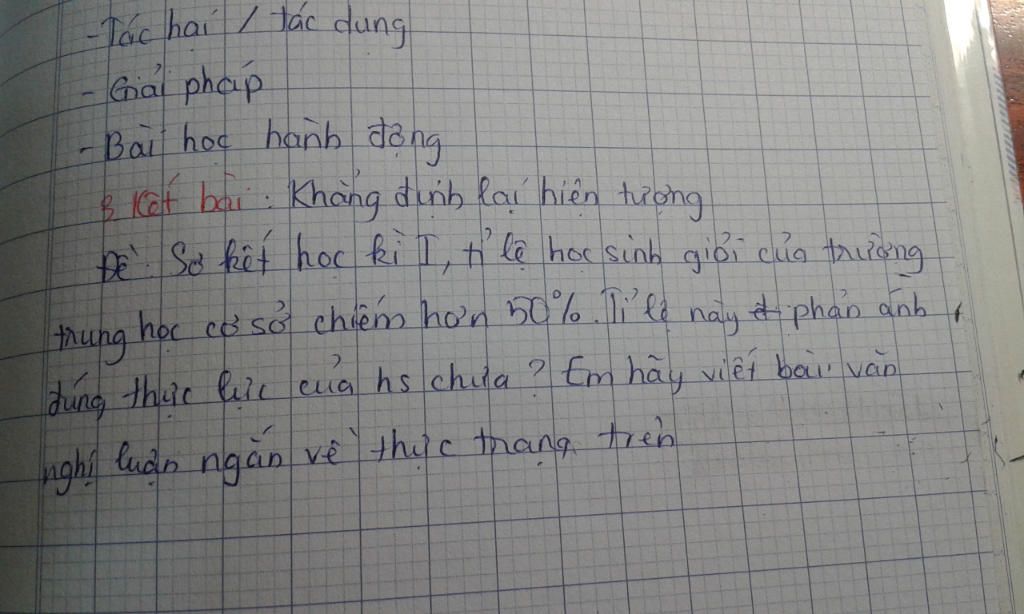 - Tác hại / tác dụng
- Giải pháp
- Bài học hành động
3 Kết bài : Khẳng định lại hiện tượng
Đề : Sơ kết học kì I, tỉ lệ học sinh giỏi của trường
trung học cơ sở chiếm hơn 50%. Tỉ lệ này phản ánh
đúng thực lực của hs chưa ? Em hãy viết bài văn
nghị luận ngắn về thực trạng trên